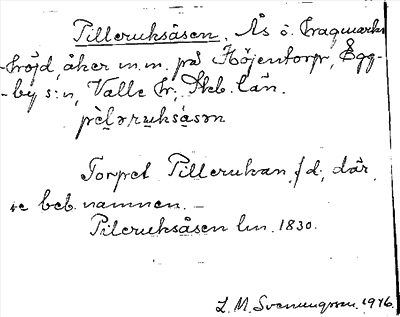 Pilleruksåsen. Ås ö. hagmarks
höjd, åker m.m. på Höjentorp, Ägg-
by s:n, Valle hr, Skb. län.
pèləruksåsən
Torpet Pillerukan f.d. där,
se beb. namnen.
Pileruksåsen lm. 1830.
L. M. Svenungsson. 1916.